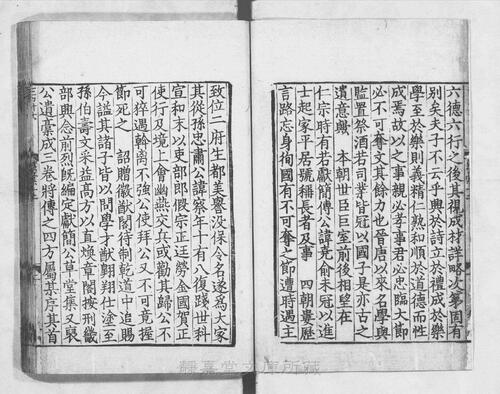 六德六行之後其視成材詳略次第固有
別矣夫子不云乎興於詩立於禮成於樂
學至於樂則義精仁熟和順於道德而性
成焉故以之事親必孝事君必忠臨大節
必不可奪文其餘力也晉唐以來名學與
監置祭酒若司業皆冠以國子是亦古之
遺意歟　本朝世臣巨室前後相望在
仁宗時有若獻簡傅公諱堯俞未冠以進
士起家平居號稱長者及事　四朝屢歷
言路忘身徇國有不可奪之節遭時遇主
致位二府生都美譽没保令名遂爲大家
其從孫忠肅公諱察年十有八復踐世科
宣和末以吏部郎假宗正廷勞金國賀正
使行及境上會幽燕交兵或勸其歸公不
可猝遇斡离不強公使拜公又不可竟握
節死之　詔贈徽猷閣待制乾道中追賜
今謚其諸子皆以問學才猷翱翔仕塗至
孫伯壽文采益高方以直煥章閣按刑畿
部興念前烈旣編定獻簡公草堂集又裒
公遺藁成三卷將傳之四方屬某序其首
靜嘉堂文庫所藏